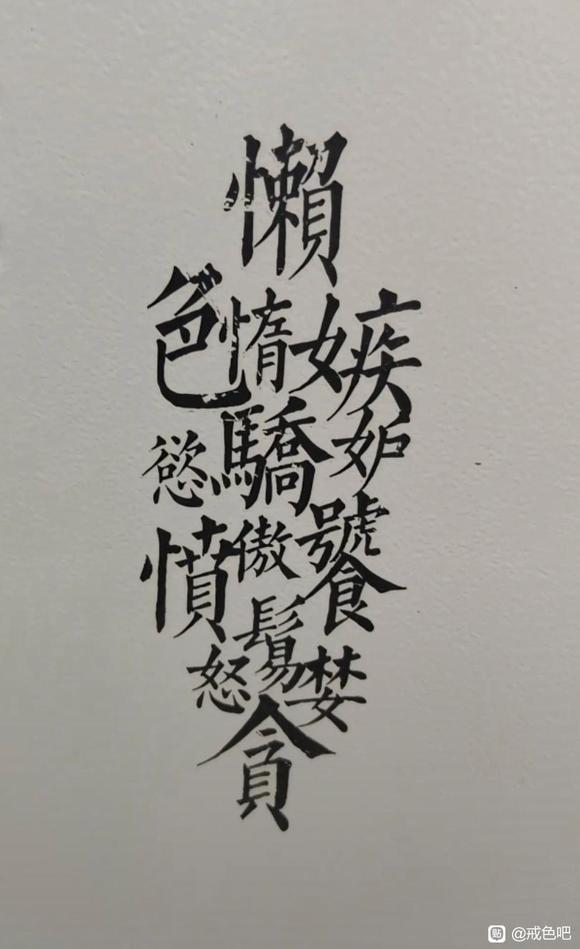 懶
色惰嫉
慾驕妒
憤傲饕
怒鬄婪
貪
贴 @戒色吧